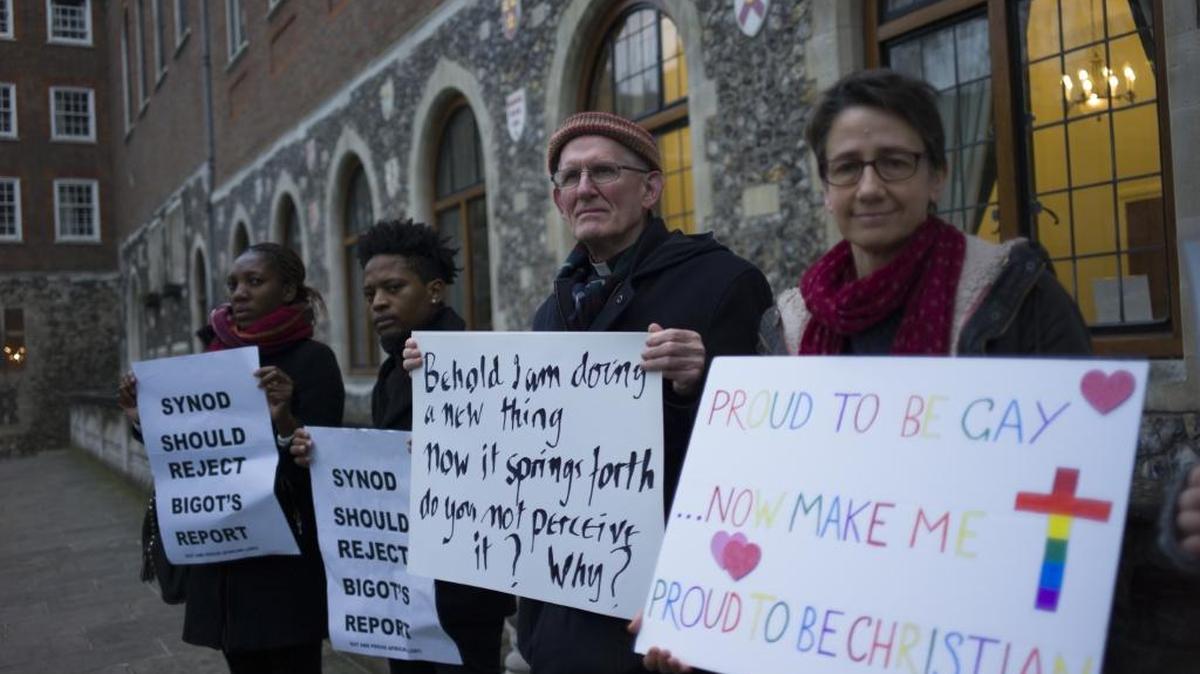 SYNOD
SHOULD
REJECT
BIGOT'S
REPORT
SYNOD
SHOULD
REJECT
BIGOT'S
REPORT
Behold I am doing
a new thing
Now it springs forth
do you not perceive
it? Why?
PROUD TO BE GAY
...NOW MAKE ME
PROUD TO BE CHRISTIAN